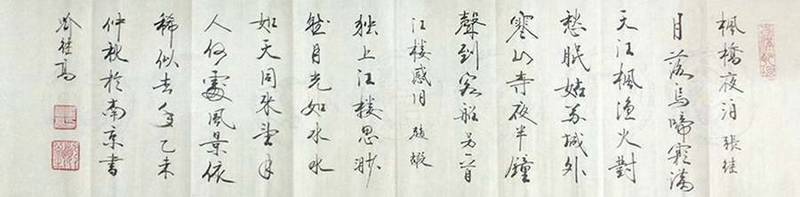 楓橋夜泊 張继
月落烏啼霜滿
天江楓漁火對
愁眠姑蘇城外
寒山寺夜半鐘
聲到客船 另一首
江楼感旧 趙嘏
独上江楼思渺
然月光如水水
如天同来望月
人何處風景依
稀似去年 乙未
仲秋於南京書